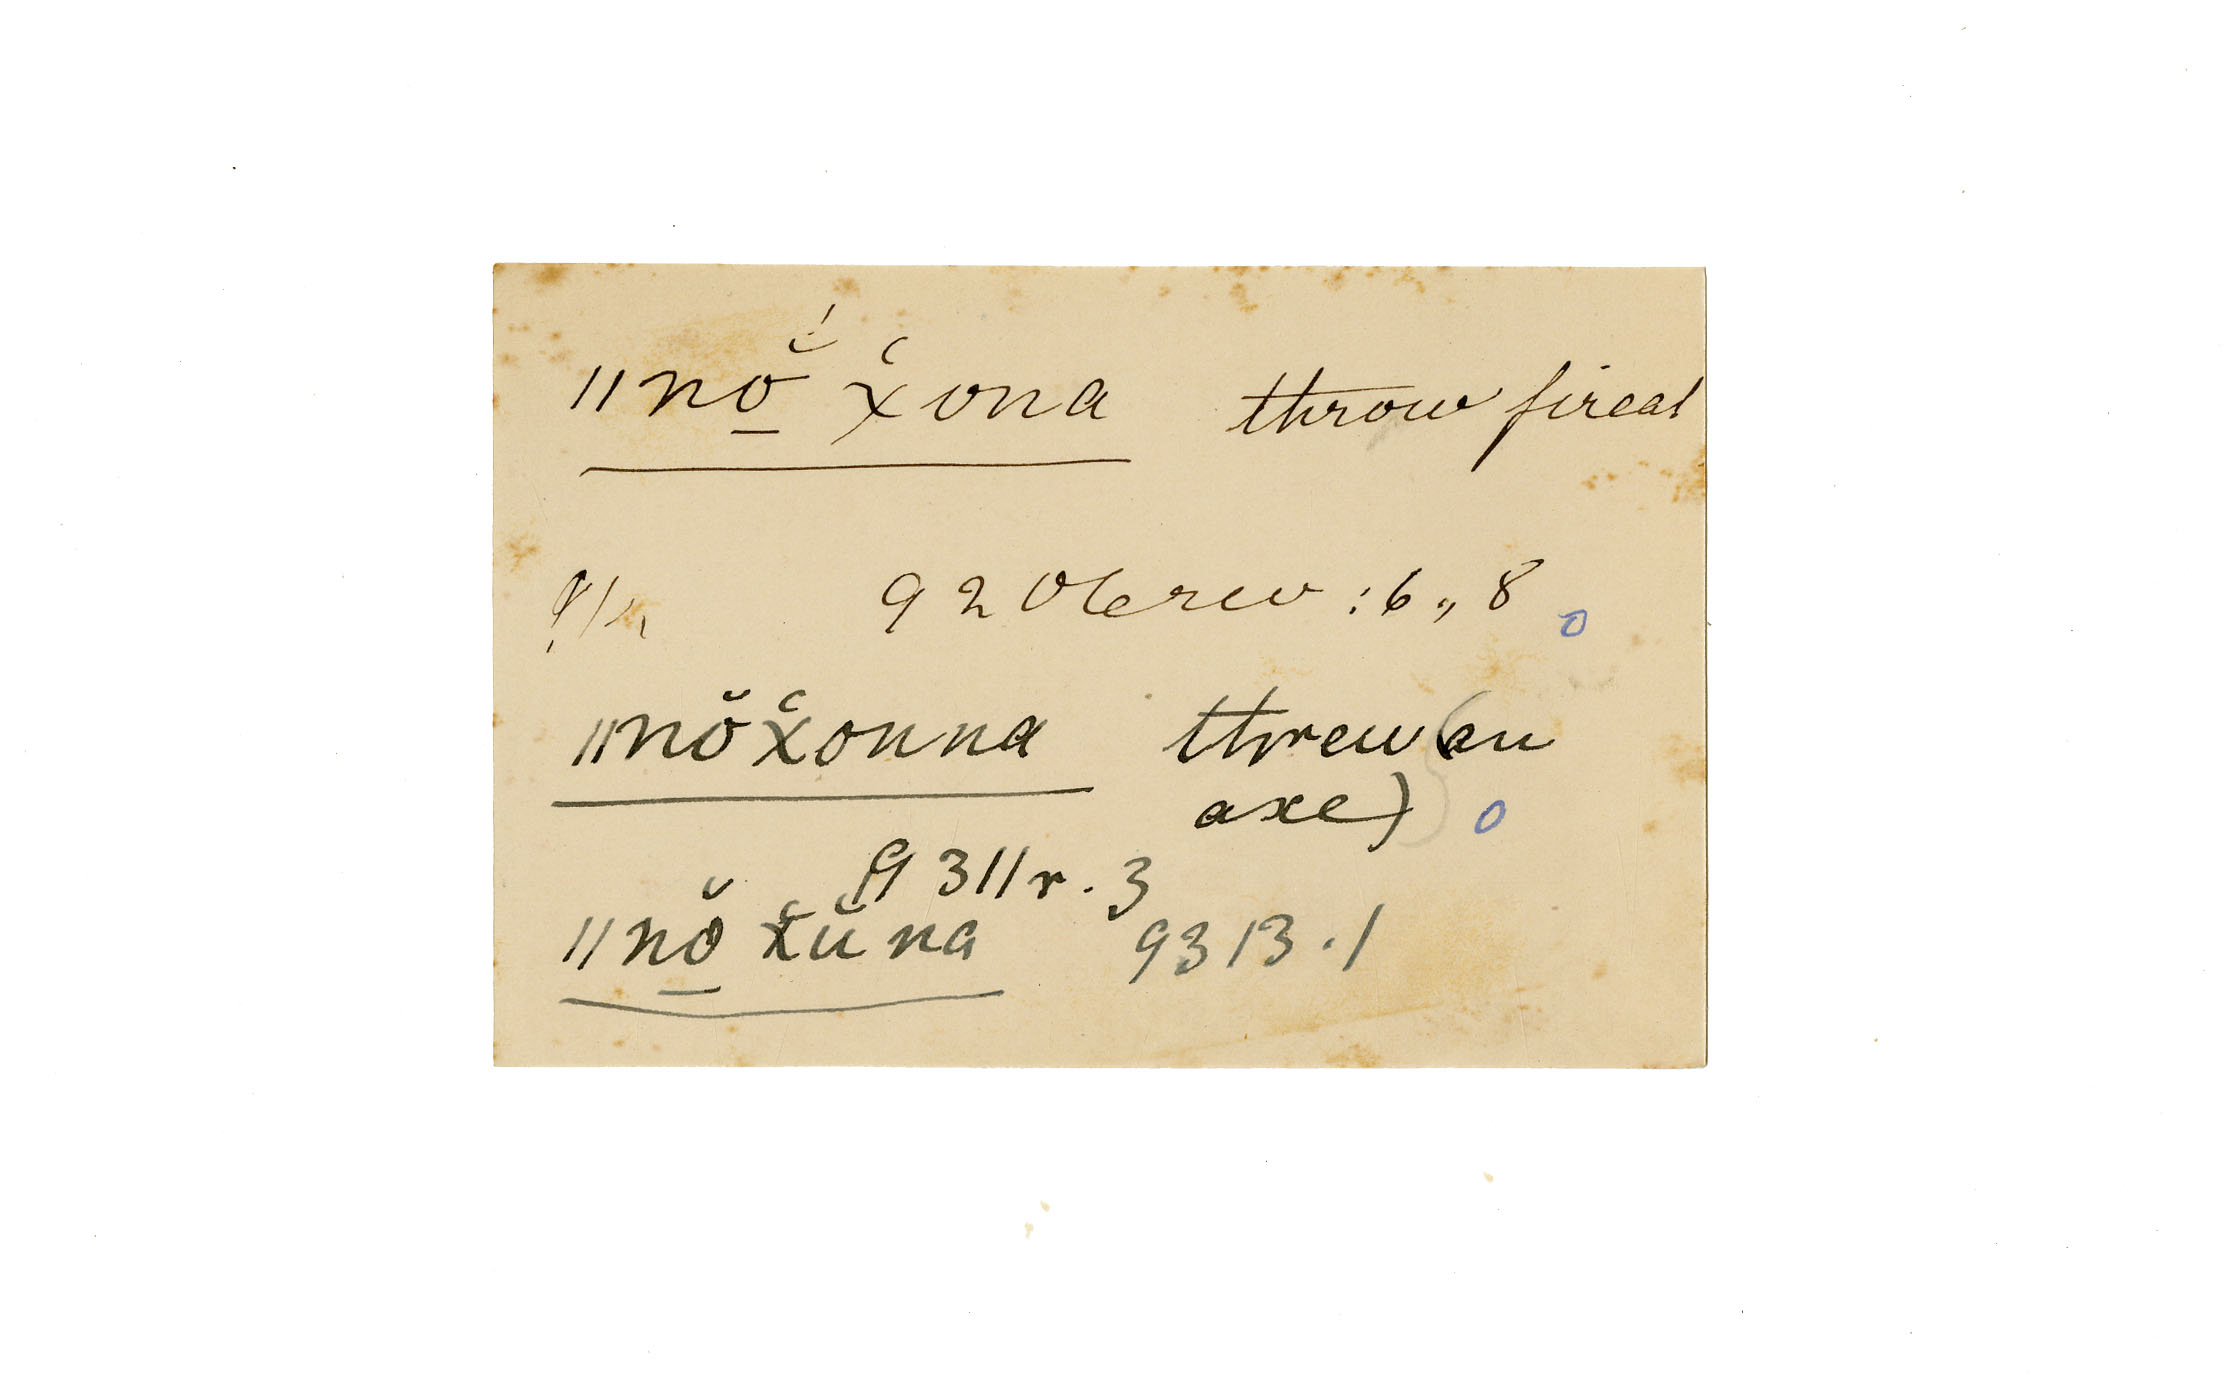 ǁnŏ̱́ χ̔ona throw fireat
9206 rev : 6,, 8
ǁnŏχ̔onna threw (an
axe)
9311 r. 3
ǁnŏ̱ χ̔ŭna 9313.1